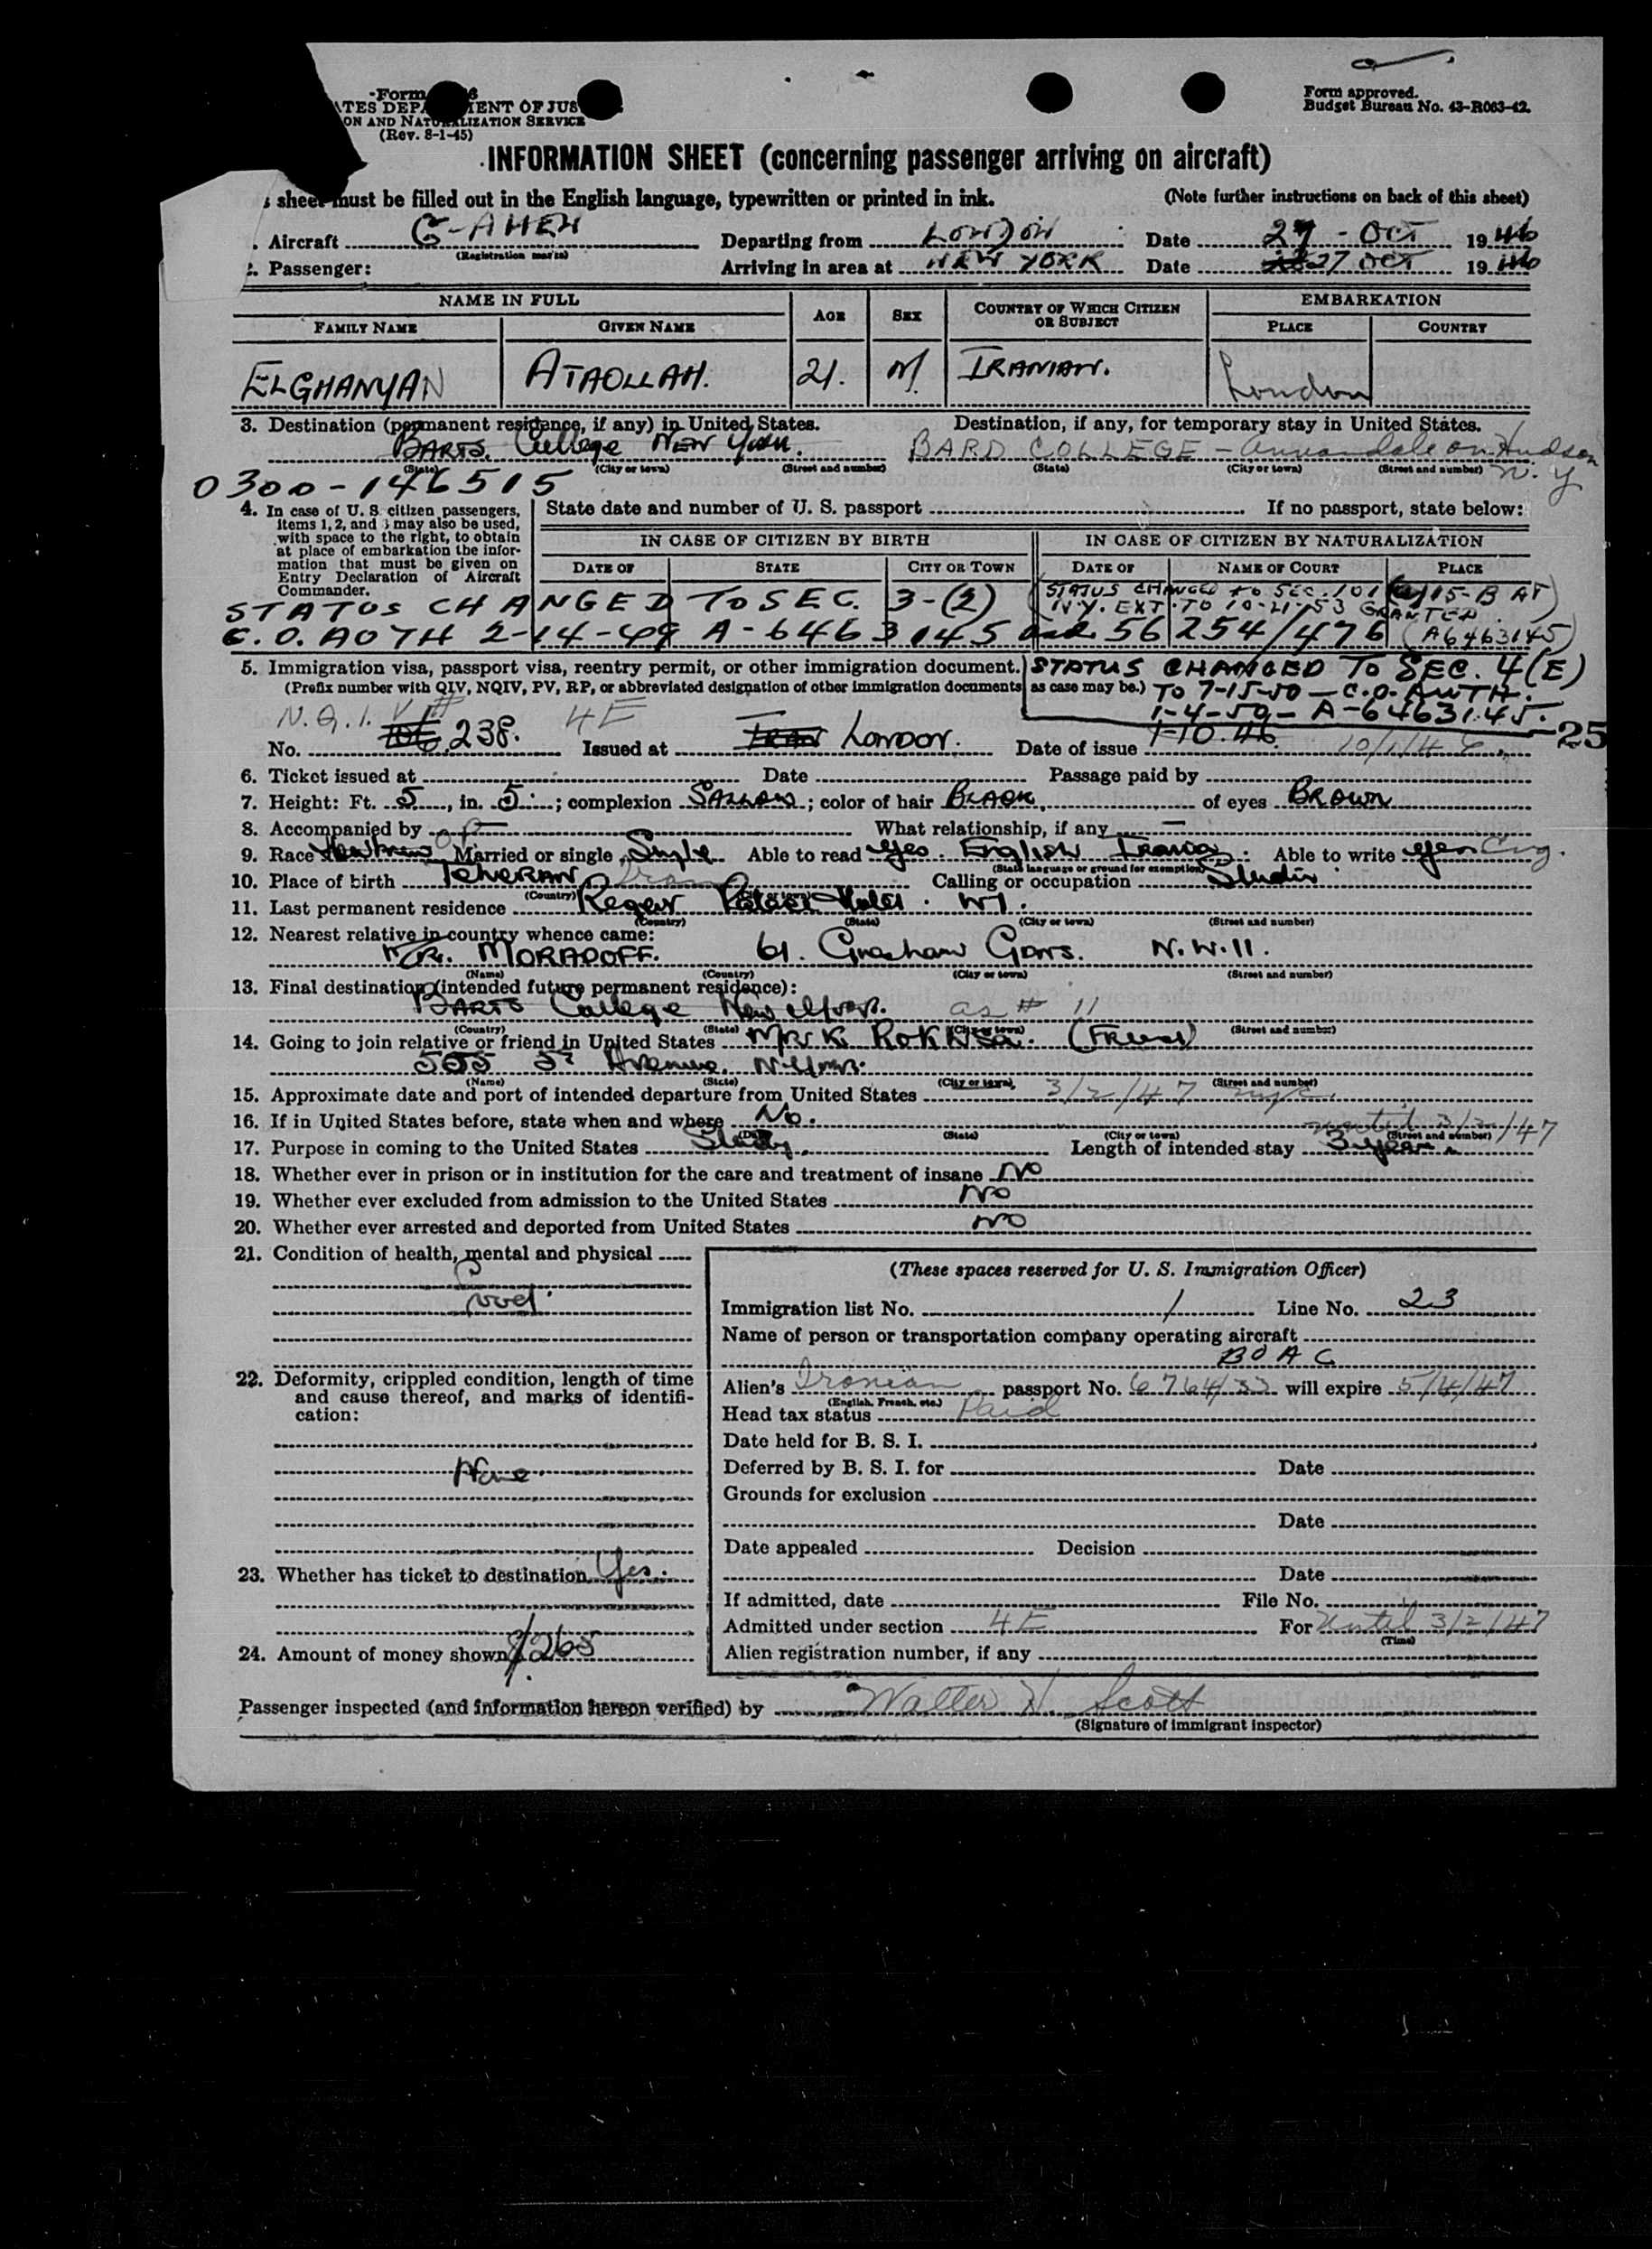 Form
TES DEPA ENT OF JUS
ON AND NATURALIZATION SERVICE
(Rev. 8-1-45)
Form approved.
Budget Bureau No. 43-R063-42.
INFORMATION SHEET (concerning passenger arriving on aircraft)
sheet must be filled out in the English language, typewritten or printed in ink. (Note further instructions on back of this sheet)
. Aircraft G-AHEN Departing from LONDON Date 27 - OCT 1946
(Registration marks)
2. Passenger: Arriving in area at NEW YORK Date 27 OCT 1946
NAME IN FULL AGE SEX COUNTRY OF WHICH CITIZEN OR SUBJECT EMBARKATION
FAMILY NAME GIVEN NAME PLACE COUNTRY
ELGHANYAN ATAOLLAH. 21. M. IRANIAN. London
3. Destination (permanent residence, if any) in United States. Destination, if any, for temporary stay in United States.
BARTS. College NEW York. BARD COLLEGE - Annandale on Hudson
(State) (City or town) (Street and number) (State) (City or town) (Street and number) N.Y
0300-146515
4. In case of U. S. citizen passengers, items 1, 2, and 3 may also be used, with space to the right, to obtain at place of embarkation the information that must be given on Entry Declaration of Aircraft Commander.
State date and number of U. S. passport If no passport, state below:
IN CASE OF CITIZEN BY BIRTH IN CASE OF CITIZEN BY NATURALIZATION
DATE OF STATE CITY OR TOWN DATE OF NAME OF COURT PLACE
(STATUS CHANGED to SEC. 101 (a) 15-B AT
N.Y. EXT. TO 10-21-53 GRANTED.
(A6463145)
STATUS CHANGED TO SEC. 3-(2)
C.O. AUTH 2-14-49 A-6463145 and 56254/476
5. Immigration visa, passport visa, reentry permit, or other immigration document.
(Prefix number with QIV, NQIV, PV, RP, or abbreviated designation of other immigration documents as case may be.)
STATUS CHANGED TO SEC. 4(E)
TO 7-15-50 - C.O. AUTH.
1-4-50 - A-6463145.
N.Q.I.V # 4E
No. 238. Issued at London. Date of issue 1-10.46 10/1/46 25
6. Ticket issued at Date Passage paid by
7. Height: Ft. 5, in. 5; complexion SALLOW; color of hair BLACK. of eyes BROWN
8. Accompanied by What relationship, if any —
9. Race Hebrew Married or single Single Able to read Yes. English Able to write Yes Eng.
(State language or ground for exemption)
10. Place of birth TEHERAN Iran Calling or occupation
(Country) (City or town)
11. Last permanent residence Palace Hotel. W1.
(Country) (State) (City or town) (Street and number)
12. Nearest relative in country whence came:
MR. MORADOFF. 61. Gresham Gdns. N.W.11.
(Name) (Country) (City or town) (Street and number)
13. Final destination (intended future permanent residence):
BARTS College New York. as # 11
(Country) (State) (City or town) (Street and number)
14. Going to join relative or friend in United States Mr K. (Friend)
5 Avenue. N.York.
(Name) (State) (City or town) (Street and number)
15. Approximate date and port of intended departure from United States 3/2/47 nyc.
16. If in United States before, state when and where No.
(State) (City or town) (Street and number)
until 3/2/47
17. Purpose in coming to the United States Study. Length of intended stay 3 years
18. Whether ever in prison or in institution for the care and treatment of insane NO
19. Whether ever excluded from admission to the United States NO
20. Whether ever arrested and deported from United States NO
21. Condition of health, mental and physical
Good.
22. Deformity, crippled condition, length of time and cause thereof, and marks of identification:
None
23. Whether has ticket to destination Yes.
24. Amount of money shown $265
(These spaces reserved for U. S. Immigration Officer)
Immigration list No. 1 Line No. 23
Name of person or transportation company operating aircraft
BOAC
Alien's Iranian passport No. 6764/33 will expire 5/4/47
(English, French, etc.)
Head tax status Paid
Date held for B. S. I.
Deferred by B. S. I. for Date
Grounds for exclusion
Date
Date appealed Decision
Date
If admitted, date File No.
Admitted under section 4E For Until 3/2/47
(Time)
Alien registration number, if any
Passenger inspected (and information hereon verified) by Walter H. Scott
(Signature of immigrant inspector)